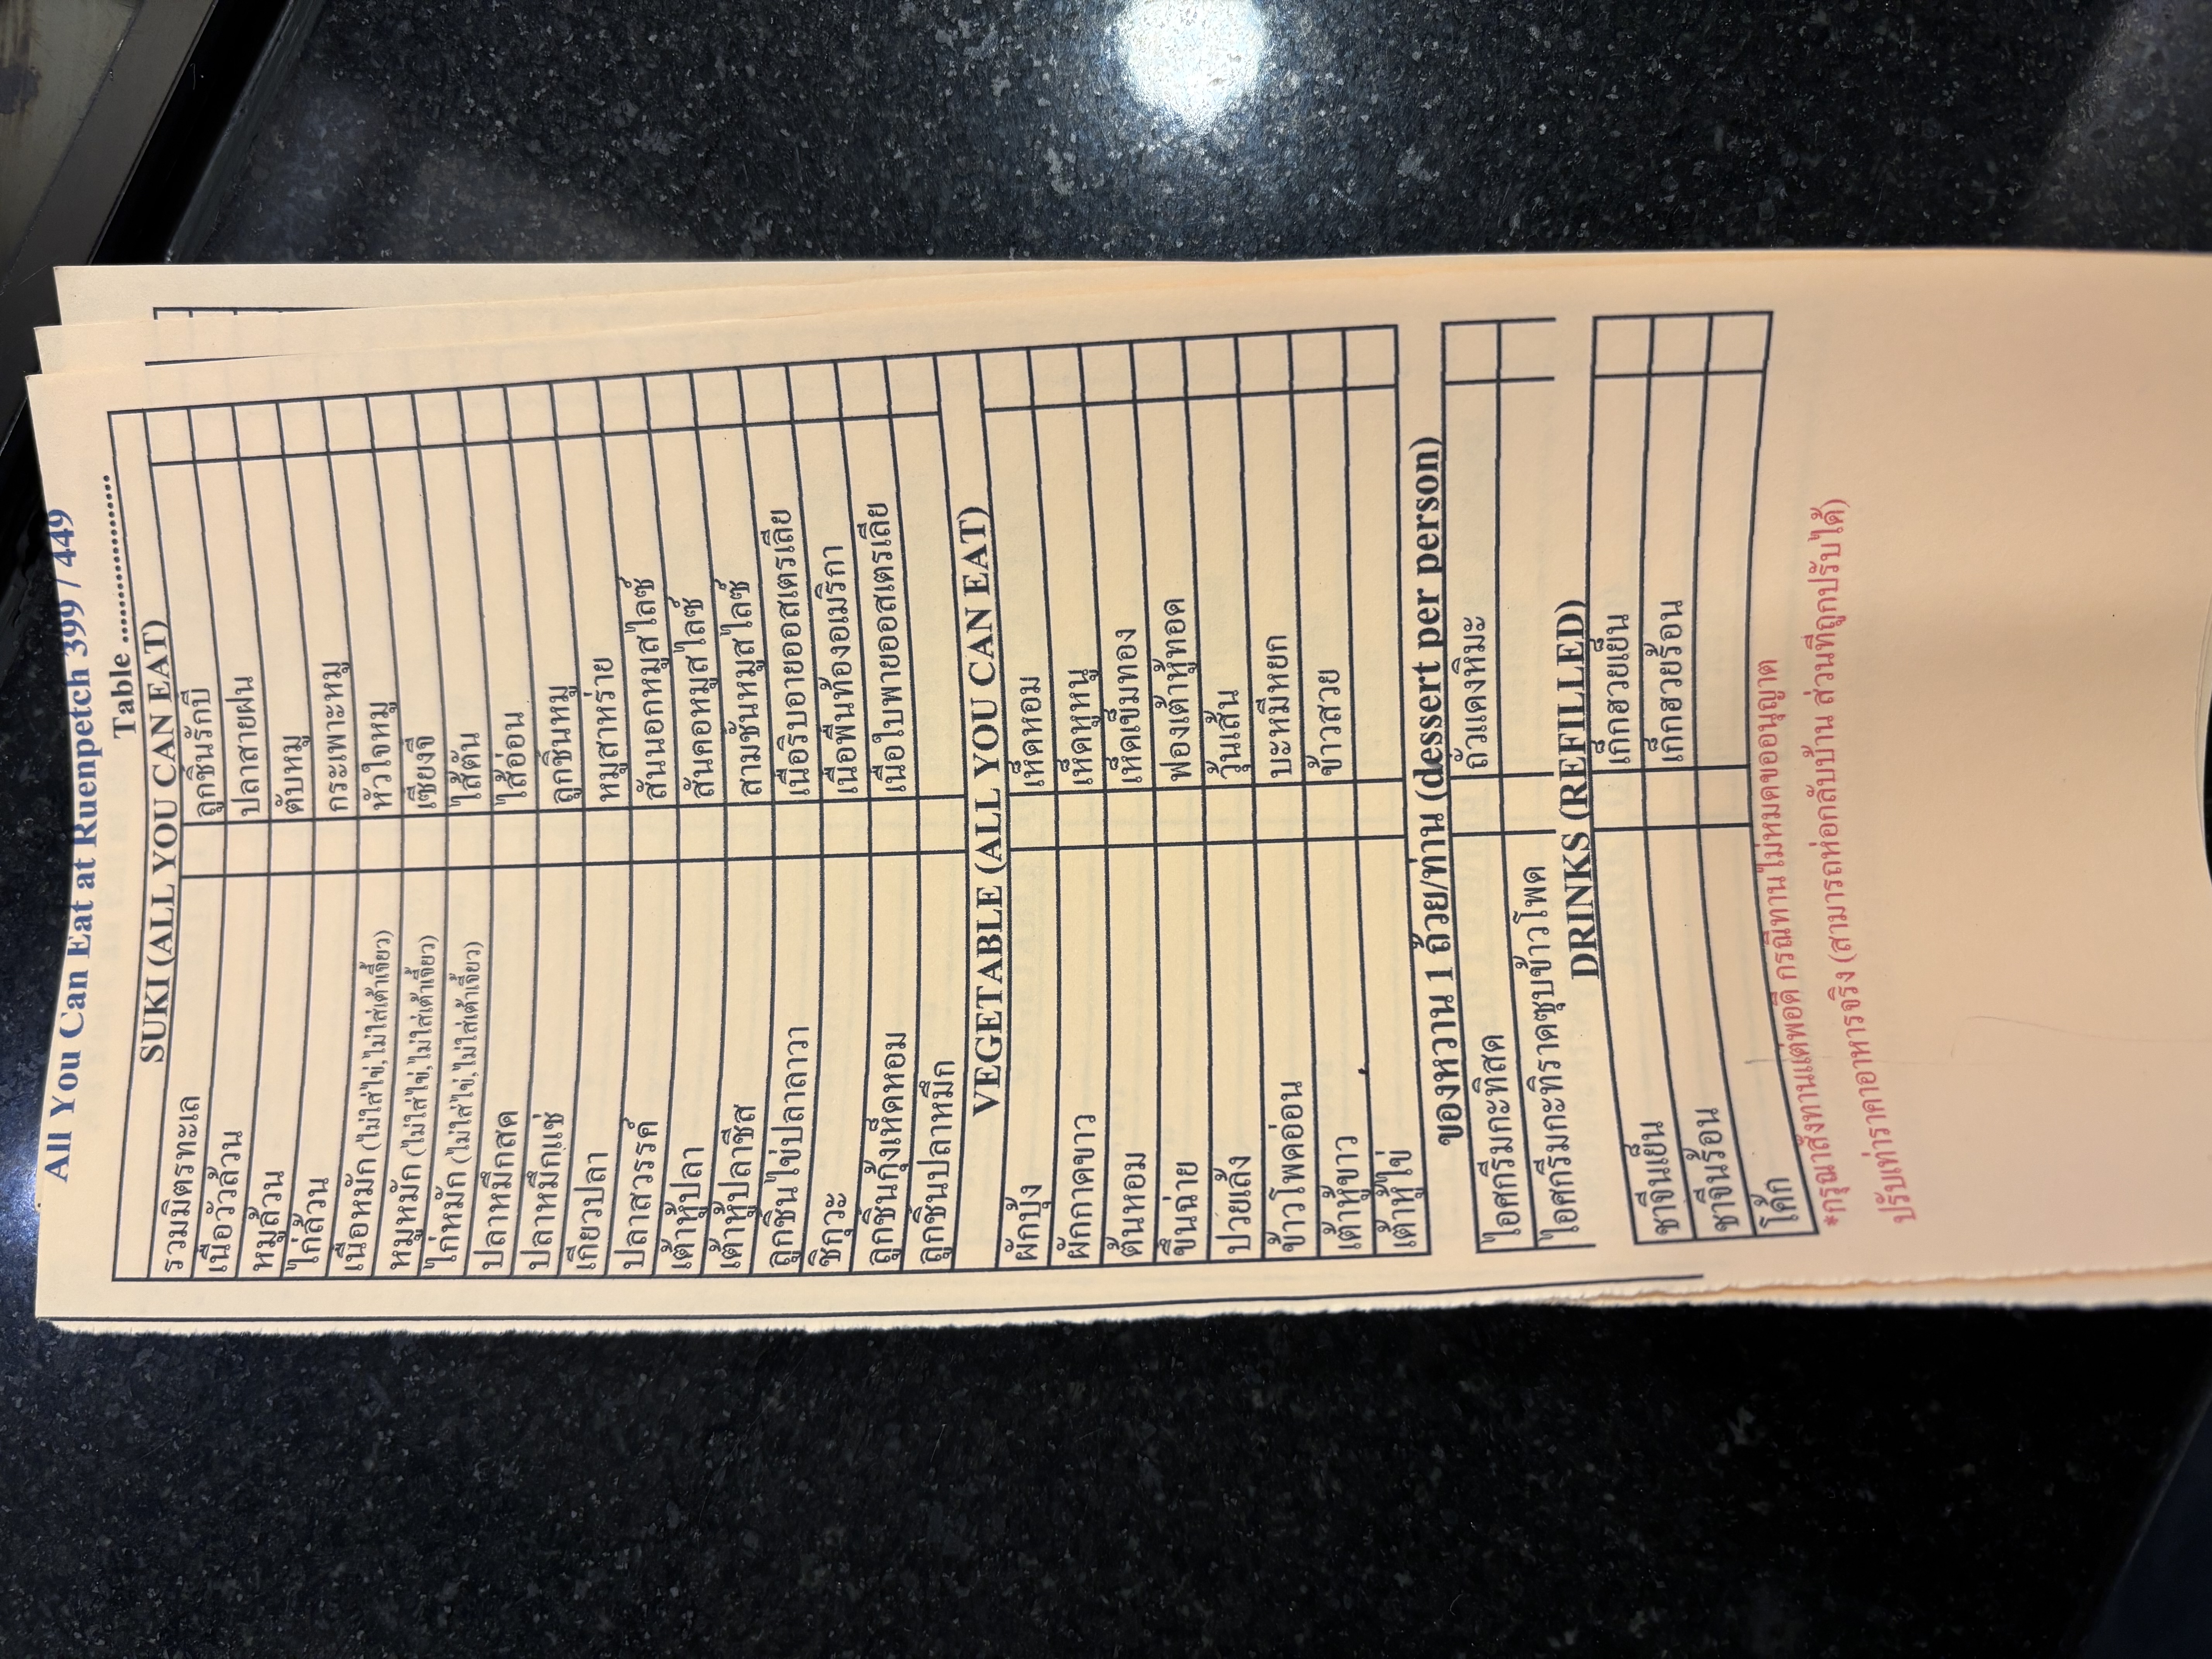 All You Can Eat at Ruenpetch 399 / 449
Table ........................
SUKI (ALL YOU CAN EAT)
รวมมิตรทะเล ลูกชิ้นรักบี้
เนื้อวัวล้วน ปลาสายฝน
หมูล้วน ตับหมู
ไก่ล้วน กระเพาะหมู
เนื้อหมัก (ไม่ใส่ไข่,ไม่ใส่เต้าเจี้ยว) หัวใจหมู
หมูหมัก (ไม่ใส่ไข่,ไม่ใส่เต้าเจี้ยว) เซี่ยงจี๊
ไก่หมัก (ไม่ใส่ไข่,ไม่ใส่เต้าเจี้ยว) ไส้ตัน
ปลาหมึกสด ไส้อ่อน
ปลาหมึกแช่ ลูกชิ้นหมู
เกี๊ยวปลา หมูสาหร่าย
ปลาสวรรค์ สันนอกหมูสไลซ์
เต้าหู้ปลา สันคอหมูสไลซ์
เต้าหู้ปลาชีส สามชั้นหมูสไลซ์
ลูกชิ้นไข่ปลาลาวา เนื้อริบอายออสเตรเลีย
ชิกุวะ เนื้อพื้นท้องอเมริกา
ลูกชิ้นกุ้งเห็ดหอม เนื้อใบพายออสเตรเลีย
ลูกชิ้นปลาหมึก
VEGETABLE (ALL YOU CAN EAT)
ผักบุ้ง เห็ดหอม
ผักกาดขาว เห็ดหูหนู
ต้นหอม เห็ดเข็มทอง
ขึ้นฉ่าย ฟองเต้าหู้ทอด
ปวยเล้ง วุ้นเส้น
ข้าวโพดอ่อน บะหมี่หยก
เต้าหู้ขาว ข้าวสวย
เต้าหู้ไข่
ของหวาน 1 ถ้วย/ท่าน (dessert per person)
ไอศกรีมกะทิสด ถั่วแดงหิมะ
ไอศกรีมกะทิราดซุบข้าวโพด
DRINKS (REFILLED)
ชาจีนเย็น เก๊กฮวยเย็น
ชาจีนร้อน เก๊กฮวยร้อน
โค้ก
*กรุณาสั่งทานแต่พอดี กรณีทานไม่หมดขออนุญาต
ปรับเท่าราคาอาหารจริง (สามารถห่อกลับบ้าน ส่วนที่ถูกปรับได้)